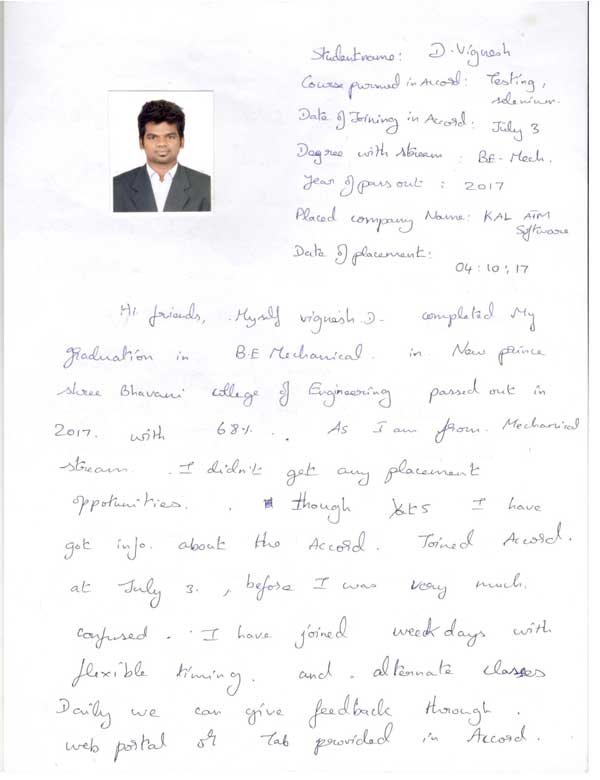 Student name: D. Vignesh
Course pursued in Accord: Testing,
selenium.
Date of Joining in Accord: July 3
Degree with stream : B.E - Mech.
Year of pass out : 2017
Placed company Name: KAL ATM
Software
Date of placement:
04.10.17
Hi friends, Myself vignesh.D. completed My
graduation in B.E Mechanical. in New prince
shree Bhavani college of Engineering passed out in
2017. with 68%. . As I am from Mechanical
stream. I didn't get any placement
oppotunities. . though I have
got info. about the Accord. Joined Accord.
at July 3. , before I was very much
confused. I have joined weekdays with
flexible timing. and alternate classes
Daily we can give feedback through.
web portal or Tab provided in Accord.